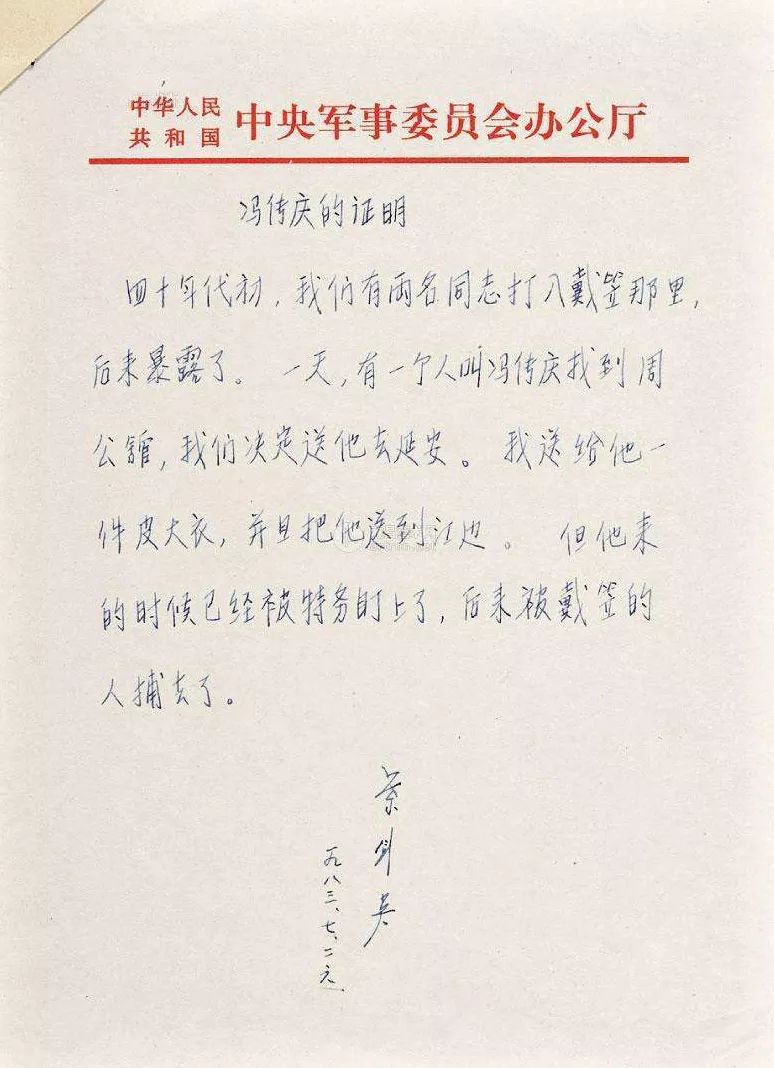 中华人民
共和国
中央军事委员会办公厅
冯传庆的证明
四十年代初，我们有两名同志打入戴笠那里，
后来暴露了。一天，有一个人叫冯传庆找到周
公舘，我们决定送他去延安。我送给他一
件皮大衣，并且把他送到江边。但他来
的时候已经被特务盯上了，后来被戴笠的
人捕去了。
叶剑英
一九八三、七、二六、